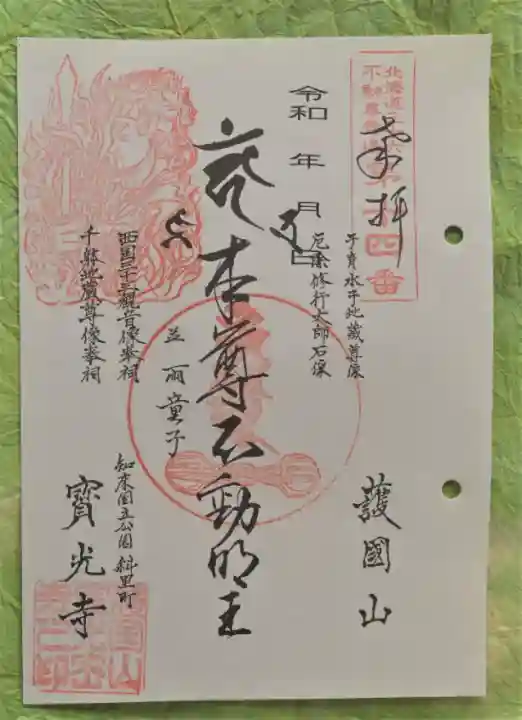 北海道三十六
不動尊霊場第
十四番
奉拝
令和 年 月 日
子育水子地蔵尊像
厄除修行大師石像
護國山
本尊不動明王
並 両童子
西国三十三観音像奉祠
千躰地蔵尊像奉祠
知床国立公園 斜里町
寳光寺